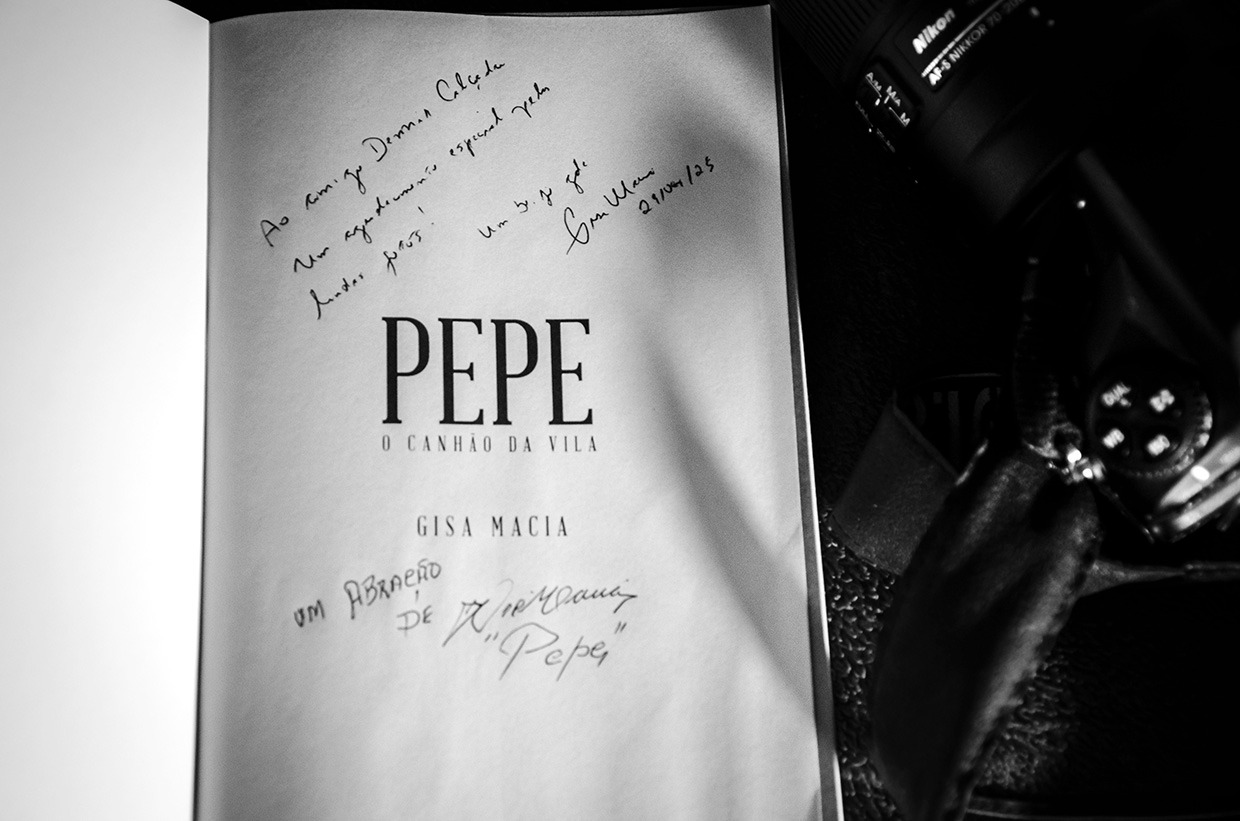 Ao amigo Dennis Calçada
Um agradecimento especial pelas
lindas fotos!
Um bj. gde
Gisa Macia
PEPE
O CANHÃO DA VILA
GISA MACIA
UM ABRAÇÃO
DE
"Pepe"
Nikon
AF-S NIKKOR 70
A/M M/A M